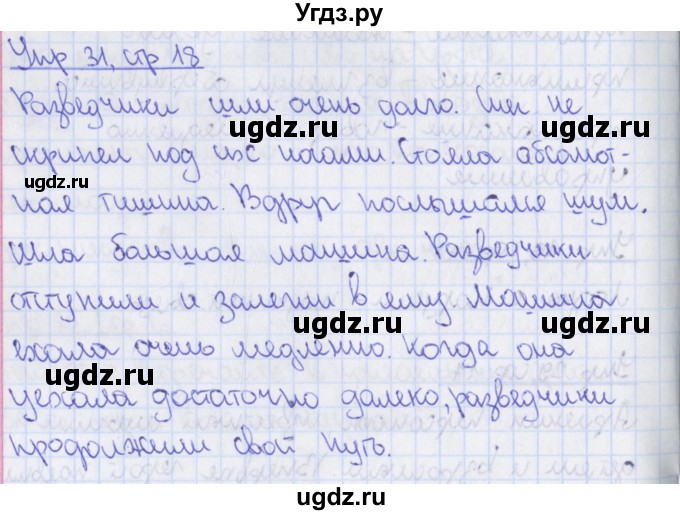 Угдз.ру
Упр 31, стр 18
Разведчики шли очень долго. Снег не
скрипел под их ногами. Стояла абсолют-
ная тишина. Вдруг послышался шум.
Шла большая машина. Разведчики
отступили и залегли в яму. Машина
ехала очень медленно. Когда она
уехала достаточно далеко, разведчики
продолжили свой путь.
ugdz.ru
ugdz.ru
ugdz.ru
ugdz.ru
ugdz.ru
ugdz.ru
ugdz.ru
ugdz.ru
ugdz.ru
ugdz.ru
ugdz.ru